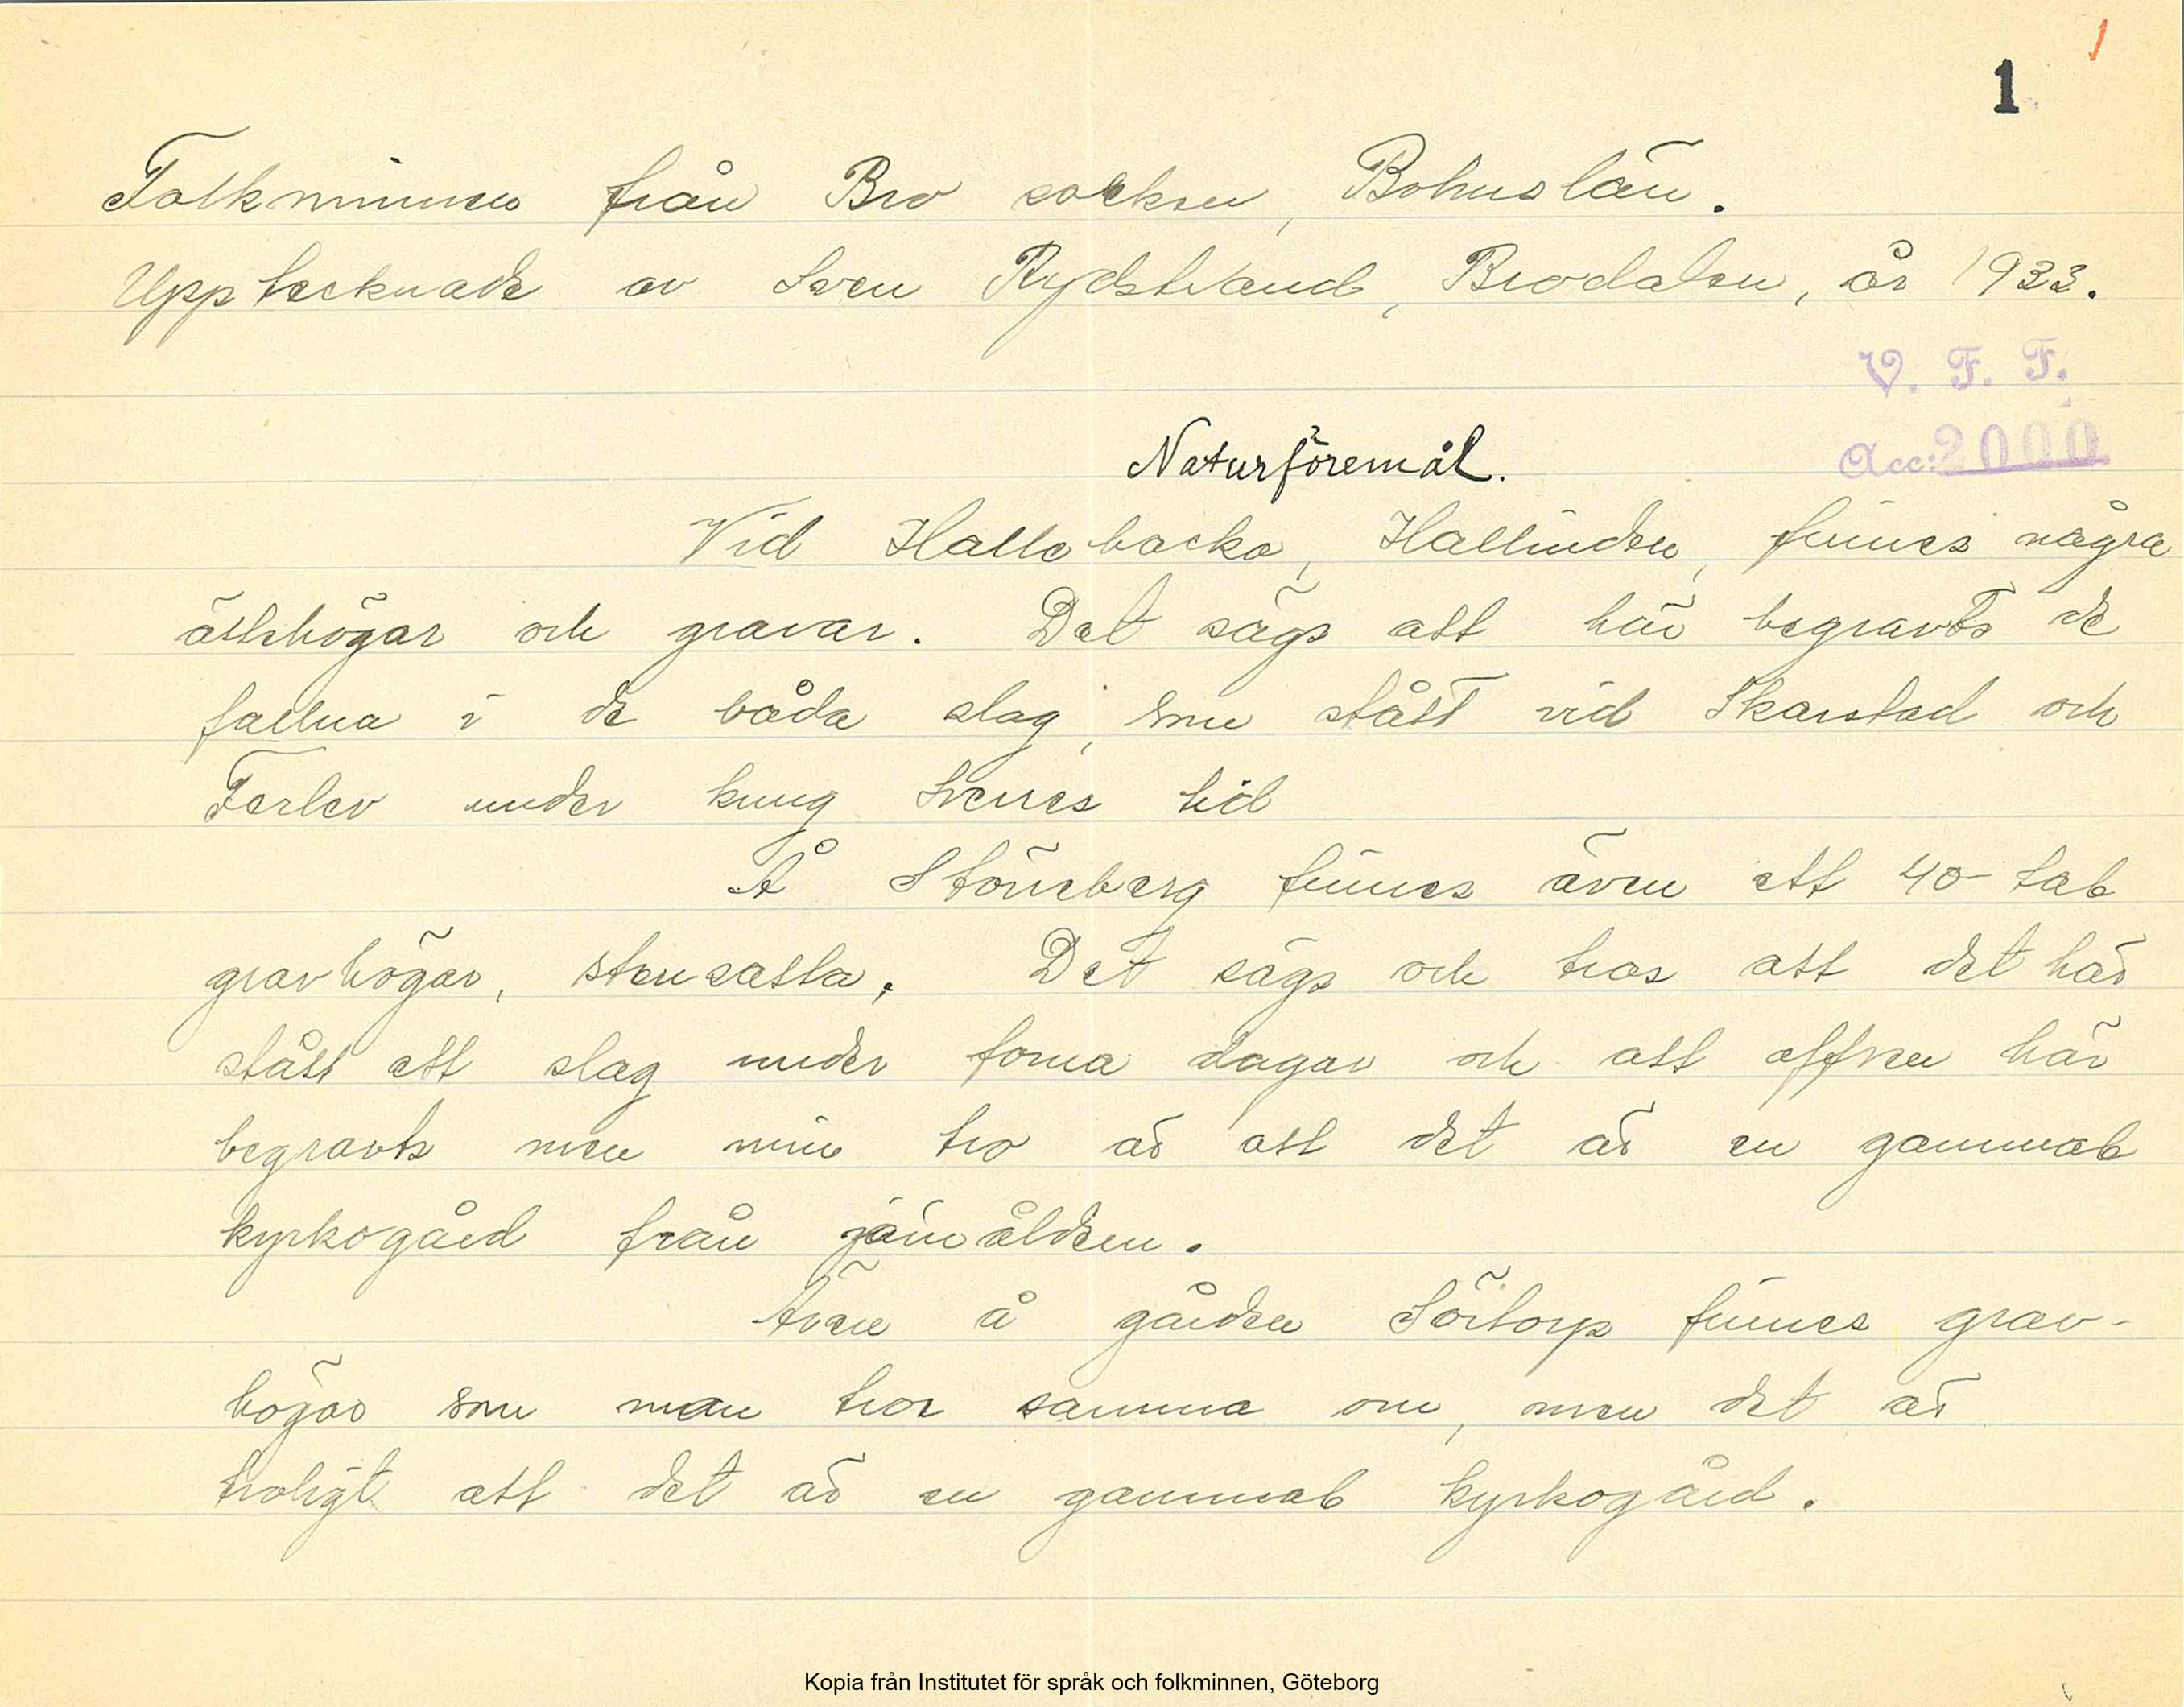 1
1
Folkminnen från Bro socken, Bohuslän.
Upptecknade av Sven Rydstrand, Brodalen, år 1933.
V. F. F.
Acc: 2000
Naturföremål.
Vid Hallebacka, Hallinden, finnes några
ättehögar och gravar. Det sägs att här begravts de
fallna i de båda slag, som stått vid Skarstad och
Ferlev under kung Sverres tid
Å Stöneberg finnes även ett 40-tal
gravhögar, stensatta. Det sägs och tros att det här
stått ett slag under forna dagar och att offren här
begravts men min tro är att det är en gammal
kyrkogård från järnåldern.
Även å gården Sörtorp finnes grav-
högar som man tror samma om, men det är
troligt att det är en gammal kyrkogård.
Kopia från Institutet för språk och folkminnen, Göteborg